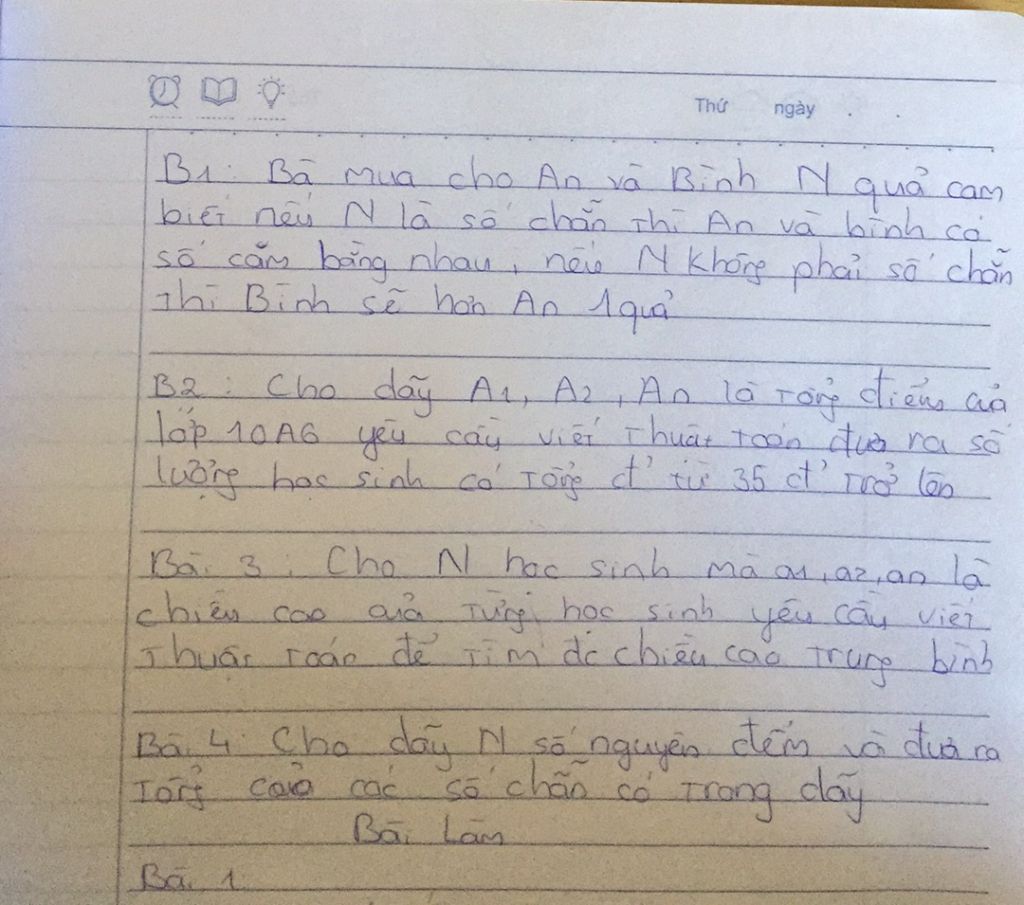 Thứ ngày
B1: Bà mua cho An và Bình N quả cam
biết nếu N là số chẵn thì An và bình có
số cam bằng nhau, nếu N không phải số chẵn
thì Bình sẽ hơn An 1 quả
B2: Cho dãy A1, A2, An là tổng điểm của
lớp 10A6 yêu cầu viết thuật toán đưa ra số
lượng học sinh có tổng đ' từ 35 đ' trở lên
Bài 3: Cho N học sinh mà a1, a2, an là
chiều cao của từng học sinh yêu cầu viết
thuật toán để tìm đc chiều cao trung bình
Bài 4: Cho dãy N số nguyên đếm và đưa ra
tổng của các số chẵn có trong dãy
Bài Làm
Bài 1